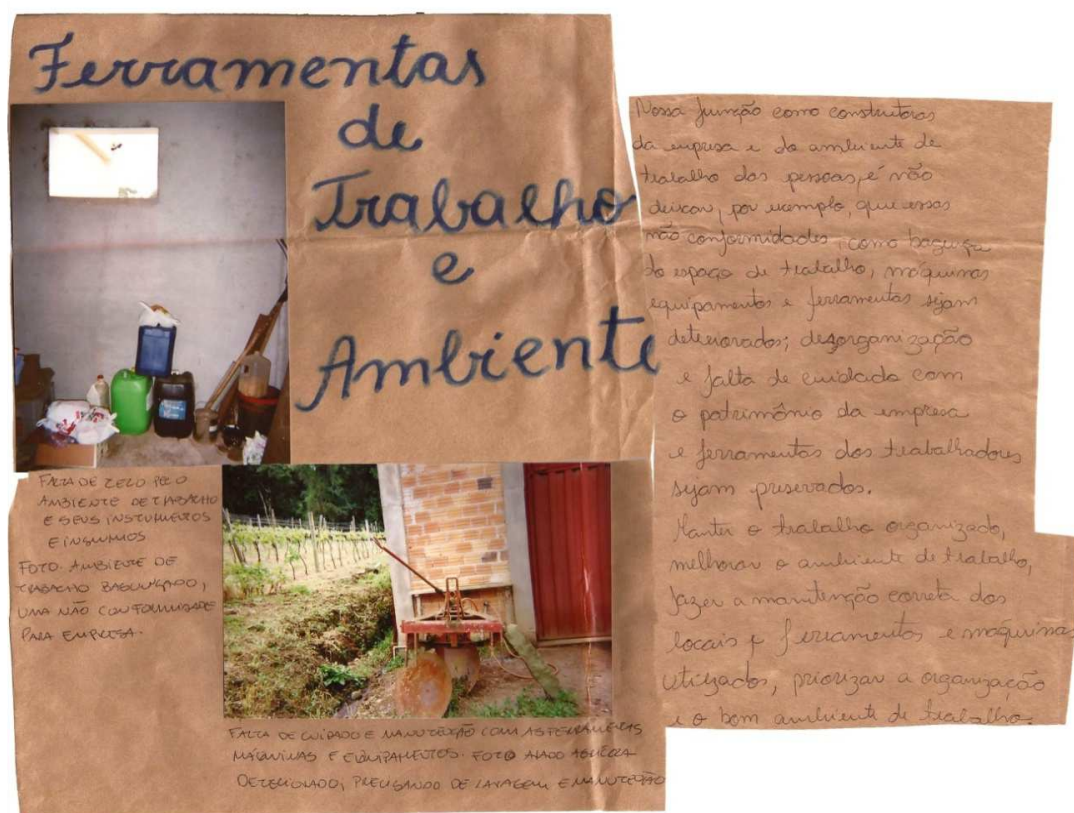 Ferramentas
de
Trabalho
e
Ambiente
FALTA DE ZELO PELO
AMBIENTE DE TRABALHO
E SEUS INSTRUMENTOS
E INSUMOS
FOTO. AMBIENTE DE
TRABALHO BAGUNÇADO,
UMA NÃO CONFORMIDADE
PARA EMPRESA.
FALTA DE CUIDADO E MANUTENÇÃO COM AS FERRAMENTAS
MÁQUINAS E EQUIPAMENTOS. FOTO ARADO AGRÍCOLA
DETERIORADO, PRECISANDO DE LAVAGEM E MANUTENÇÃO
Nossa função como construtoras
da empresa e do ambiente de
trabalho das pessoas, é não
deixar, por exemplo, que essas
não conformidades, como bagunça
do espaço de trabalho, máquinas
equipamentos e ferramentas sejam
deteriorados; desorganização
e falta de cuidado com
o patrimônio da empresa
e ferramentas dos trabalhadores
sejam preservados.
Manter o trabalho organizado,
melhorar o ambiente de trabalho,
fazer a manutenção correta dos
locais e ferramentas e máquinas
utilizados, priorizar a organização
e o bom ambiente de trabalho.